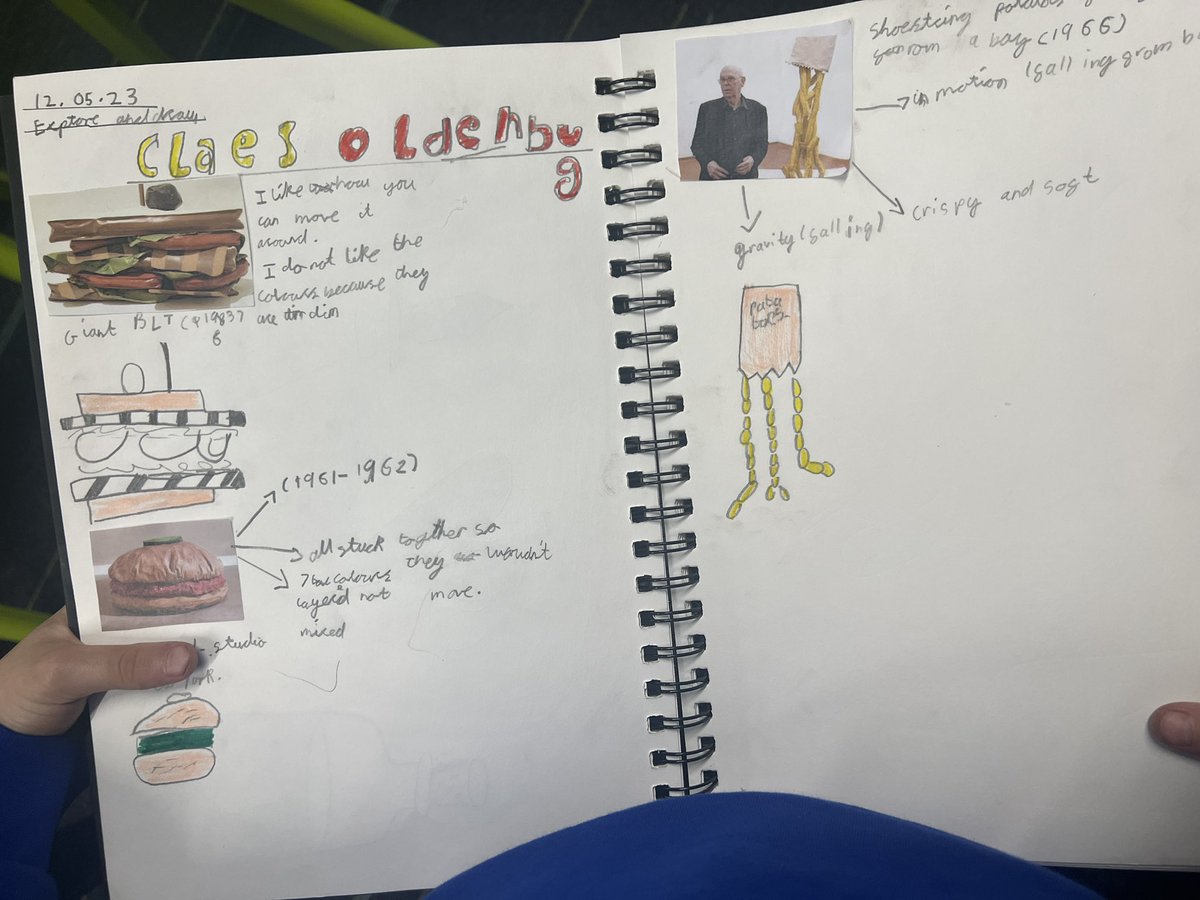 12.05.23
Explore and draw
Claes Oldenbu
g
I like how you
can move it
around.
I do not like the
colours because they
are dim
Giant BLT (1963)
(1961-1962)
all stuck together so
they wouldn't
move.
colours
layered not
mixed
studio
York.
Shoestring potatoes
from a bag (1966)
in motion (falling from
gravity (falling)
crispy and soft